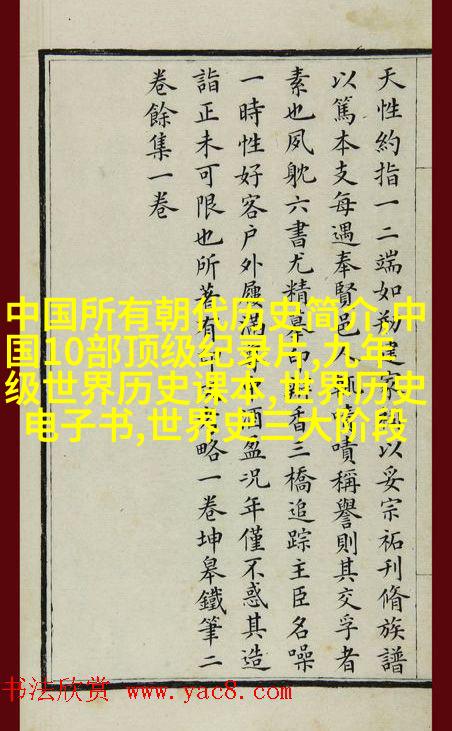 天性約指一二端如建以妥宗祏刊脩族譜
以篤本支每遇奉賢邑人師嘖嘖稱譽則其交孚者
素也夙耽六書尤精摹印香三橋追踪主臣名噪
一時性好客户外屨滿酒盈況年僅不惑其造
詣正未可限也所著有略一卷坤皋鐵筆二
卷餘集一卷
中国所有朝代历史简介,中
国10部顶级纪录片,九年
级世界历史课本,世界历史
电子书,世界史三大阶段
书法欣赏 www.yac8.com